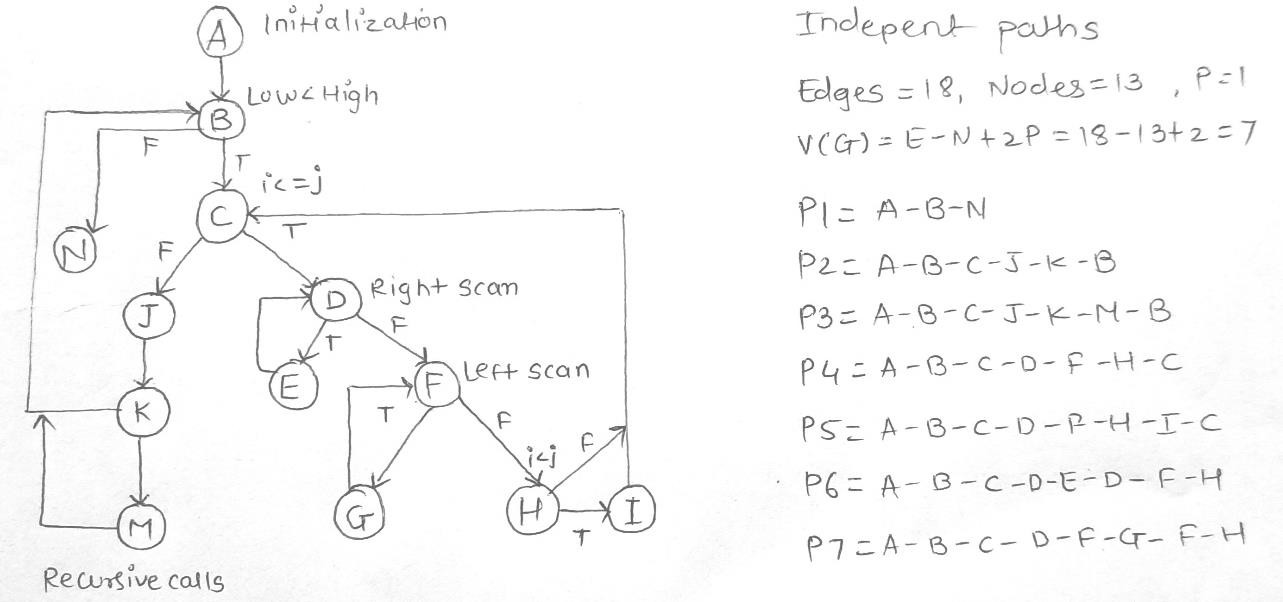 A Initialization
Low<High
B
F
T
i<=j
C
T
N
F
D Right scan
J
F
T
E
F Left scan
K
T
F
i<j
F
G
H
I
T
M
Recursive calls
Indepent paths
Edges = 18, Nodes = 13 , P = 1
V(G) = E - N + 2P = 18 - 13 + 2 = 7
P1 = A-B-N
P2 = A-B-C-J-K-B
P3 = A-B-C-J-K-M-B
P4 = A-B-C-D-F-H-C
P5 = A-B-C-D-F-H-I-C
P6 = A-B-C-D-E-D-F-H
P7 = A-B-C-D-F-G-F-H